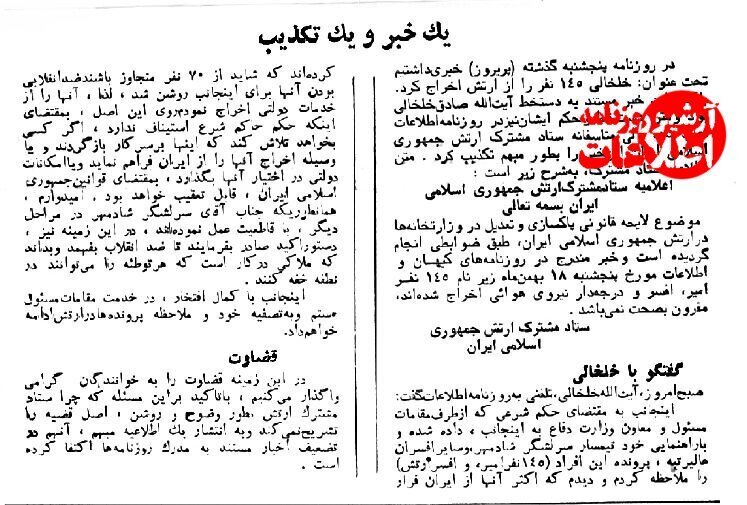 يك خبر و يك تكذيب
در روزنامه پنجشنبه گذشته (پريروز) خبرى داشتيم
تحت عنوان: خلخالى ١٤٥ نفر را از ارتش اخراج كرد.
خبر مستند به دستخط آيت‌الله صادق خلخالى
بود و متن حكم ايشان نيز در روزنامه اطلاعات
متاسفانه ستاد مشترك ارتش جمهورى
اسلامى را بطور مبهم تكذيب كرد . متن
ستاد مشترك، به‌شرح زير است :
اعلاميه ستاد مشترك ارتش جمهورى اسلامى
ايران بسمه تعالى
موضوع لايحه قانونى پاكسازى و تعديل در وزارتخانه‌ها
در ارتش جمهورى اسلامى ايران، طبق ضوابطى انجام
گرديده است و خبر مندرج در روزنامه‌هاى كيهان و
اطلاعات مورخ پنجشنبه ١٨ بهمن‌ماه زير نام ١٤٥ نفر
امير، افسر و درجه‌دار نيروى هوائى اخراج شده‌اند،
مقرون بصحت نمى‌باشد .
ستاد مشترك ارتش جمهورى
اسلامى ايران
گفتگو با خلخالى
صبح امروز، آيت‌الله خلخالى، تلفنى به روزنامه اطلاعات گفت:
اينجانب به مقتضاى حكم شرعى كه از طرف مقامات
مسئول و معاون وزارت دفاع به اينجانب ، داده شده و
باراهنمايى خود تيمسار سرلشگر شادمهر، و ساير افسران
عاليرتبه ، پرونده اين افراد (١٤٥ نفر امير، و افسر ارتش)
را ملاحظه كردم و ديدم كه اكثر آنها از ايران فرار
كرده‌اند كه شايد از ٧٠ نفر متجاوز باشند ضد انقلابى
بودن آنها براى اينجانب روشن شد ، لذا ، آنها را از
خدمات دولتى اخراج نمودم روى اين اصل ، بمقتضاى
اينكه حكم حاكم شرع استيناف ندارد ، اگر كسى
بخواهد تلاش كند كه اينها برسر كار بازگردند و يا
وسيله اخراج آنها را از ايران فراهم نمايد ويا امكانات
دولتى در اختيار آنها بگذارد ، بمقتضاى قوانين جمهورى
اسلامى ايران ، قابل تعقيب خواهد بود . اميدوارم ،
همانطوريكه جناب آقاى سرلشگر شادمهر در مراحل
ديگر ، با قاطعيت عمل نموده‌اند ، در اين زمينه نيز ،
دستور اكيد صادر بفرمايند تا ضد انقلاب بفهمد وبداند
كه ملاكى در كار است كه هر توطئه را مى‌توانند در
نطفه خفه كنند .
اينجانب با كمال افتخار ، در خدمت مقامات مسئول
هستم وبه تصفيه خود و ملاحظه پرونده‌ها در ارتش ادامه
خواهم داد.
قضاوت
در اين زمينه قضاوت را به خوانندگان گرامى
واگذار مى‌كنيم ، باتاكيد براين مسئله كه چرا ستاد
مشترك ارتش بطور وضوح و روشن ، اصل قضيه را
تشريح نمى‌كند وبه انتشار يك اطلاعيه مبهم ، آنهم در
تضعيف اخبار مستند به مدرك روزنامه‌ها اكتفا كرده
است .
آرشيو روزنامه
اطلاعات